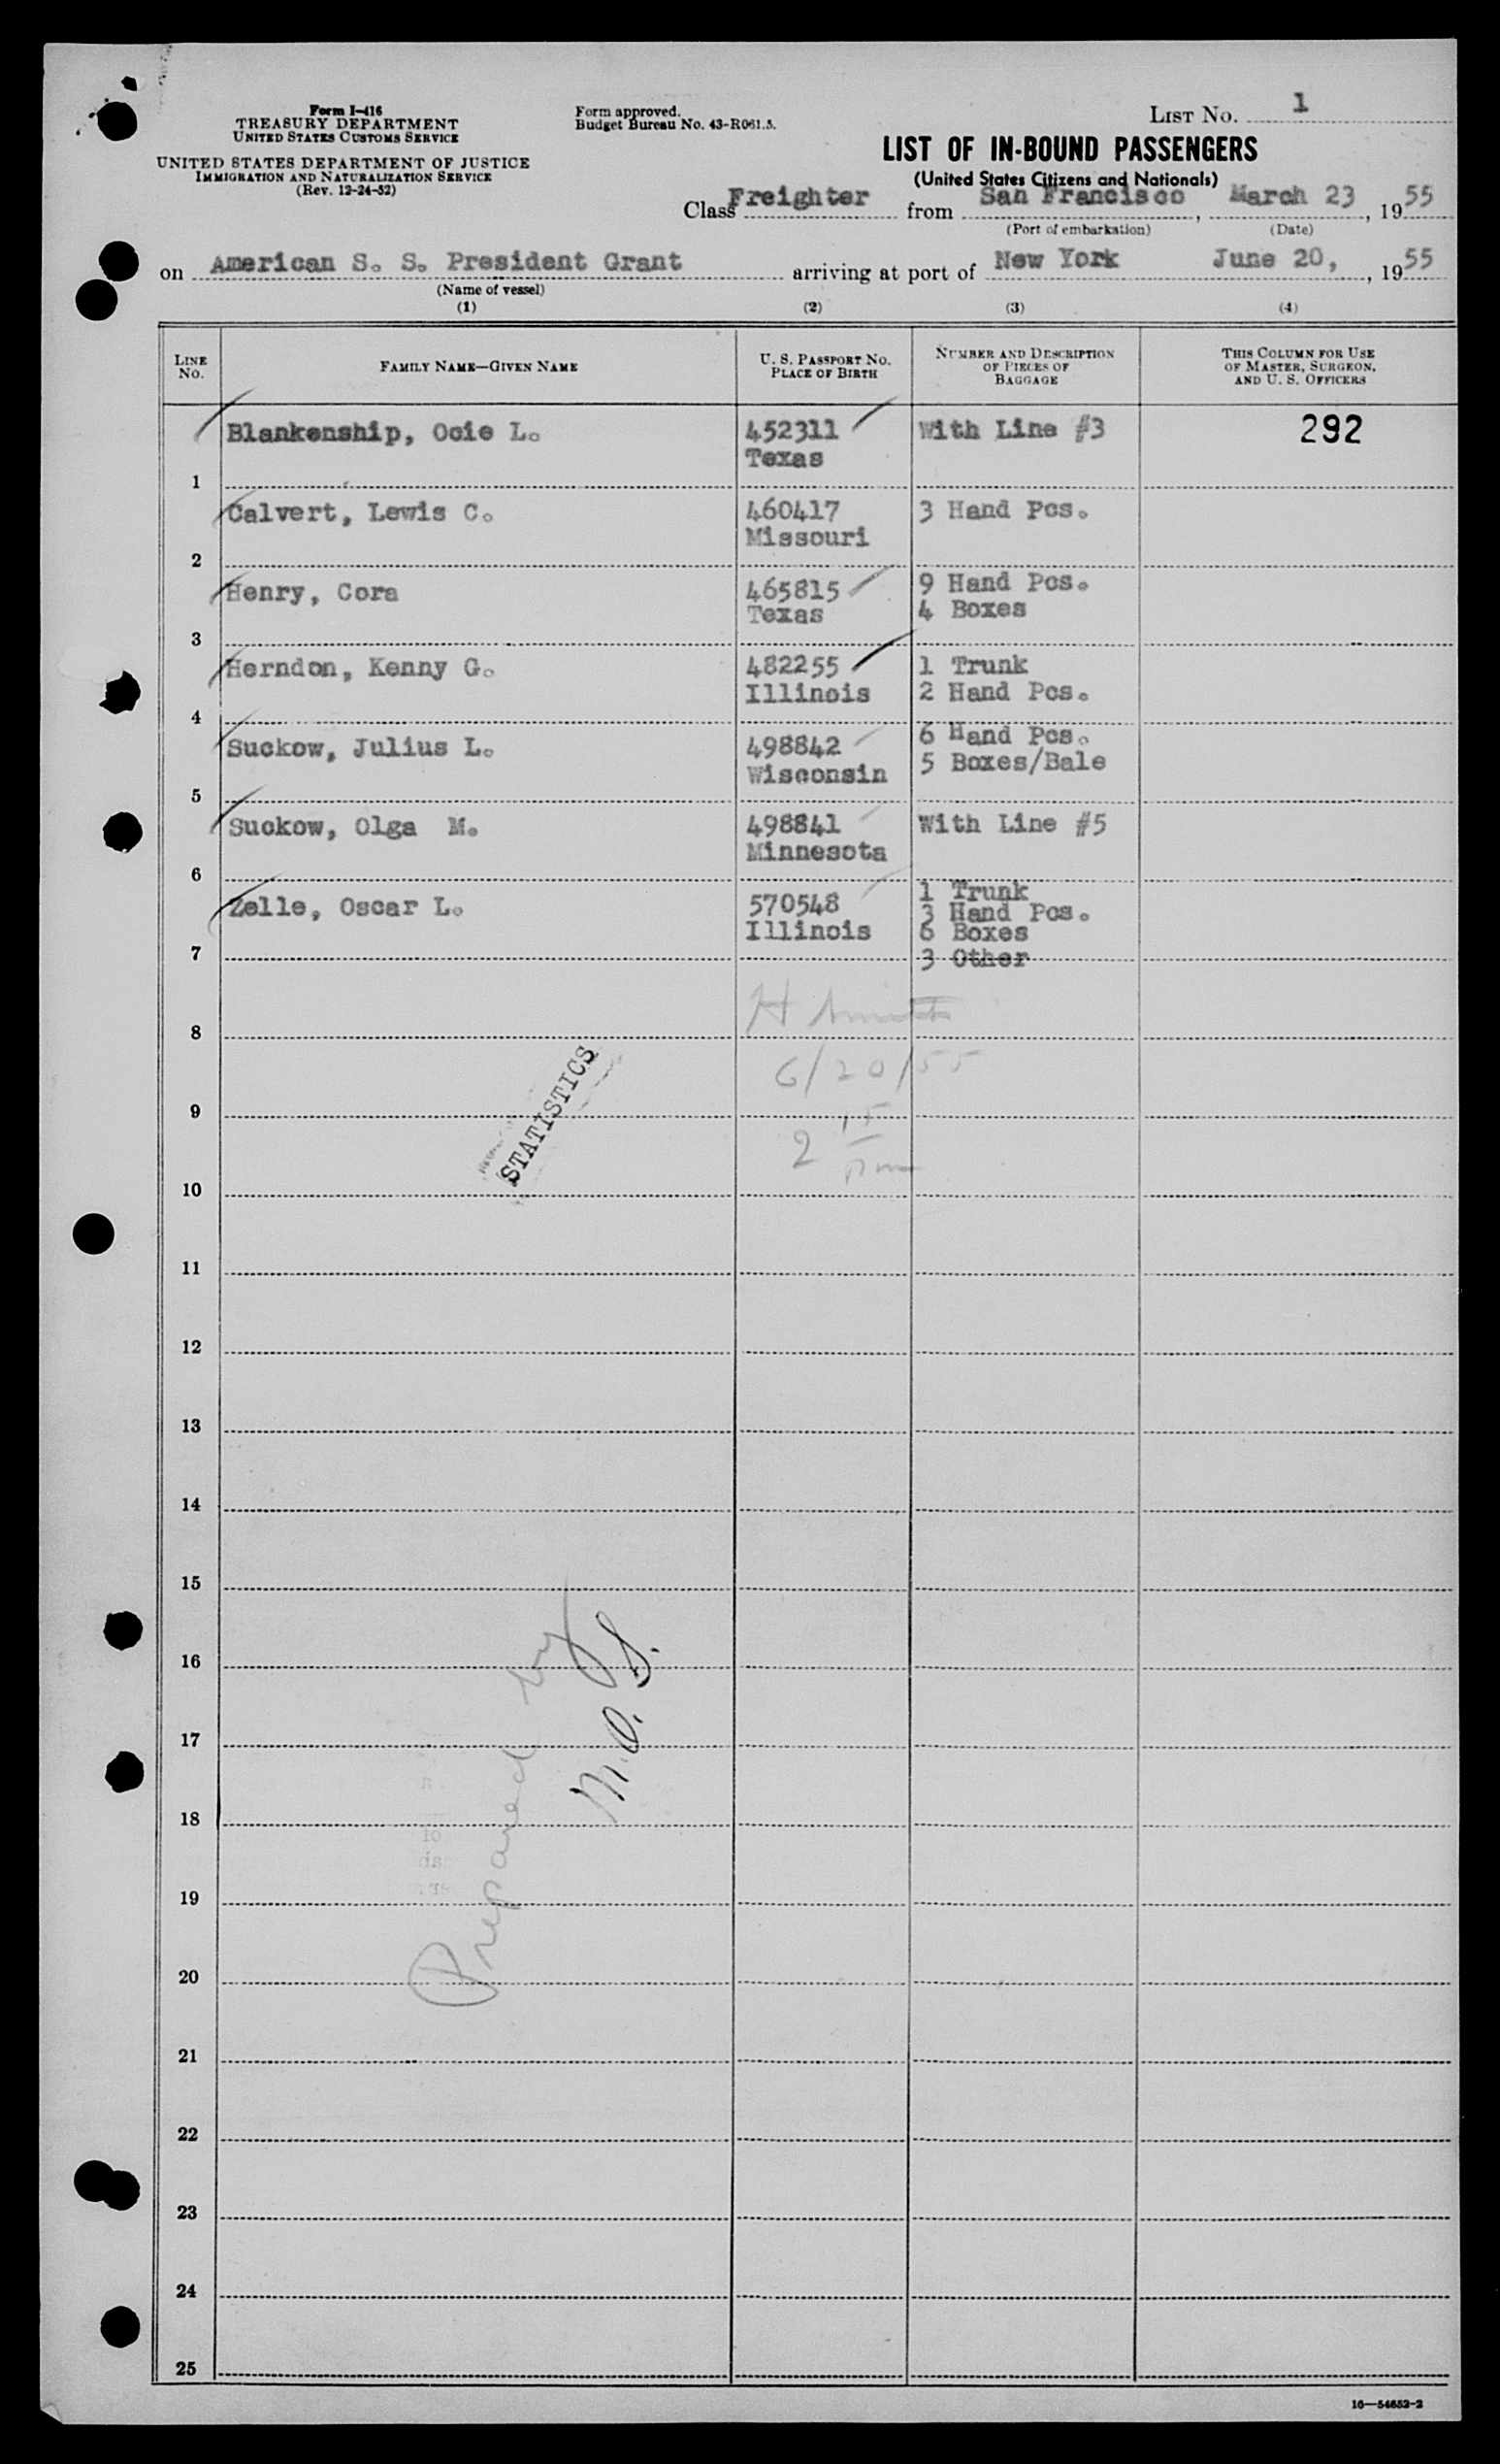 Form I-416
TREASURY DEPARTMENT
UNITED STATES CUSTOMS SERVICE
UNITED STATES DEPARTMENT OF JUSTICE
IMMIGRATION AND NATURALIZATION SERVICE
(Rev. 12-24-52)
Form approved.
Budget Bureau No. 43-R061.5.
LIST NO. 1
LIST OF IN-BOUND PASSENGERS
(United States Citizens and Nationals)
Class Freighter from San Francisco, March 23, 1955
(Port of embarkation) (Date)
on American S. S. President Grant arriving at port of New York June 20, 1955
(Name of vessel)
(1) (2) (3) (4)
LINE NO. FAMILY NAME—GIVEN NAME U. S. PASSPORT NO. PLACE OF BIRTH NUMBER AND DESCRIPTION OF PIECES OF BAGGAGE THIS COLUMN FOR USE OF MASTER, SURGEON, AND U. S. OFFICERS
Blankenship, Ocie L. 452311 With Line #3 292
Texas
1
Calvert, Lewis C. 460417 3 Hand Pcs.
Missouri
2
Henry, Cora 465815 9 Hand Pcs.
Texas 4 Boxes
3
Herndon, Kenny G. 482255 1 Trunk
Illinois 2 Hand Pcs.
4
Suckow, Julius L. 498842 6 Hand Pcs.
Wisconsin 5 Boxes/Bale
5
Suckow, Olga M. 498841 With Line #5
Minnesota
6
Zelle, Oscar L. 570548 1 Trunk
3 Hand Pcs.
Illinois 6 Boxes
7 3 Other
8
6/20/55
STATISTICS
9
2 15 pm
10
11
12
13
14
15
16
17
18
Prepared by
M.O.S.
19
20
21
22
23
24
25
16—54652-2